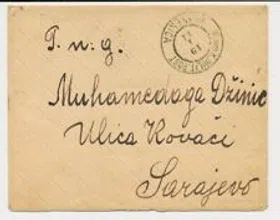 T. n. g.
Muhamedaga Džinić
Ulica Kovači
Sarajevo